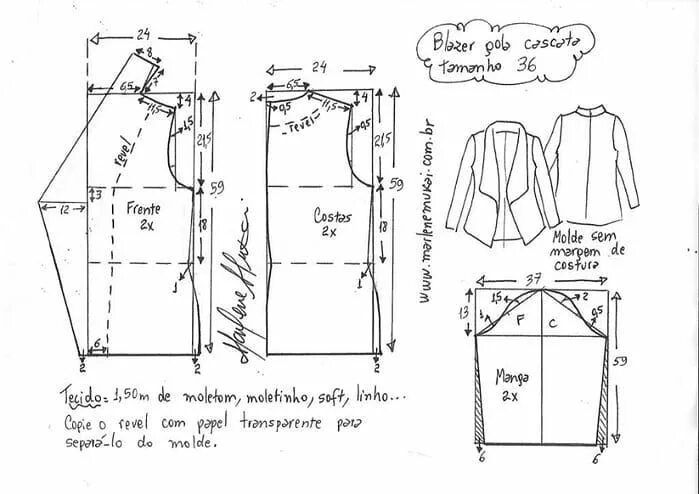 Blazer gola cascata
tamanho 36
24
8
7
6,5
11,5
4
1,5
21,5
59
revel
3
12
Frente
2x
18
1
6
2
2
Marlene Mukai
24
6,5
2
0,5
11,5
4
revel
0,5
21,5
59
Costas
2x
18
1
2
www.marlenemukai.com.br
Molde sem
margem de
costura
37
13
1,5
2
1
F
C
0,5
59
Manga
2x
6
6
Tecido= 1,50m de moletom, moletinho, soft, linho...
Copie o revel com papel transparente para
separá-lo do molde.